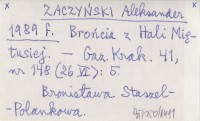 ZACZYŃSKI Aleksander
1989 f. Brońcia z Hali Mię-
tusiej. — Gaz. Krak. 41,
nr 148 (26 VI): 5.
Bronisława Staszel-
-Polankowa.